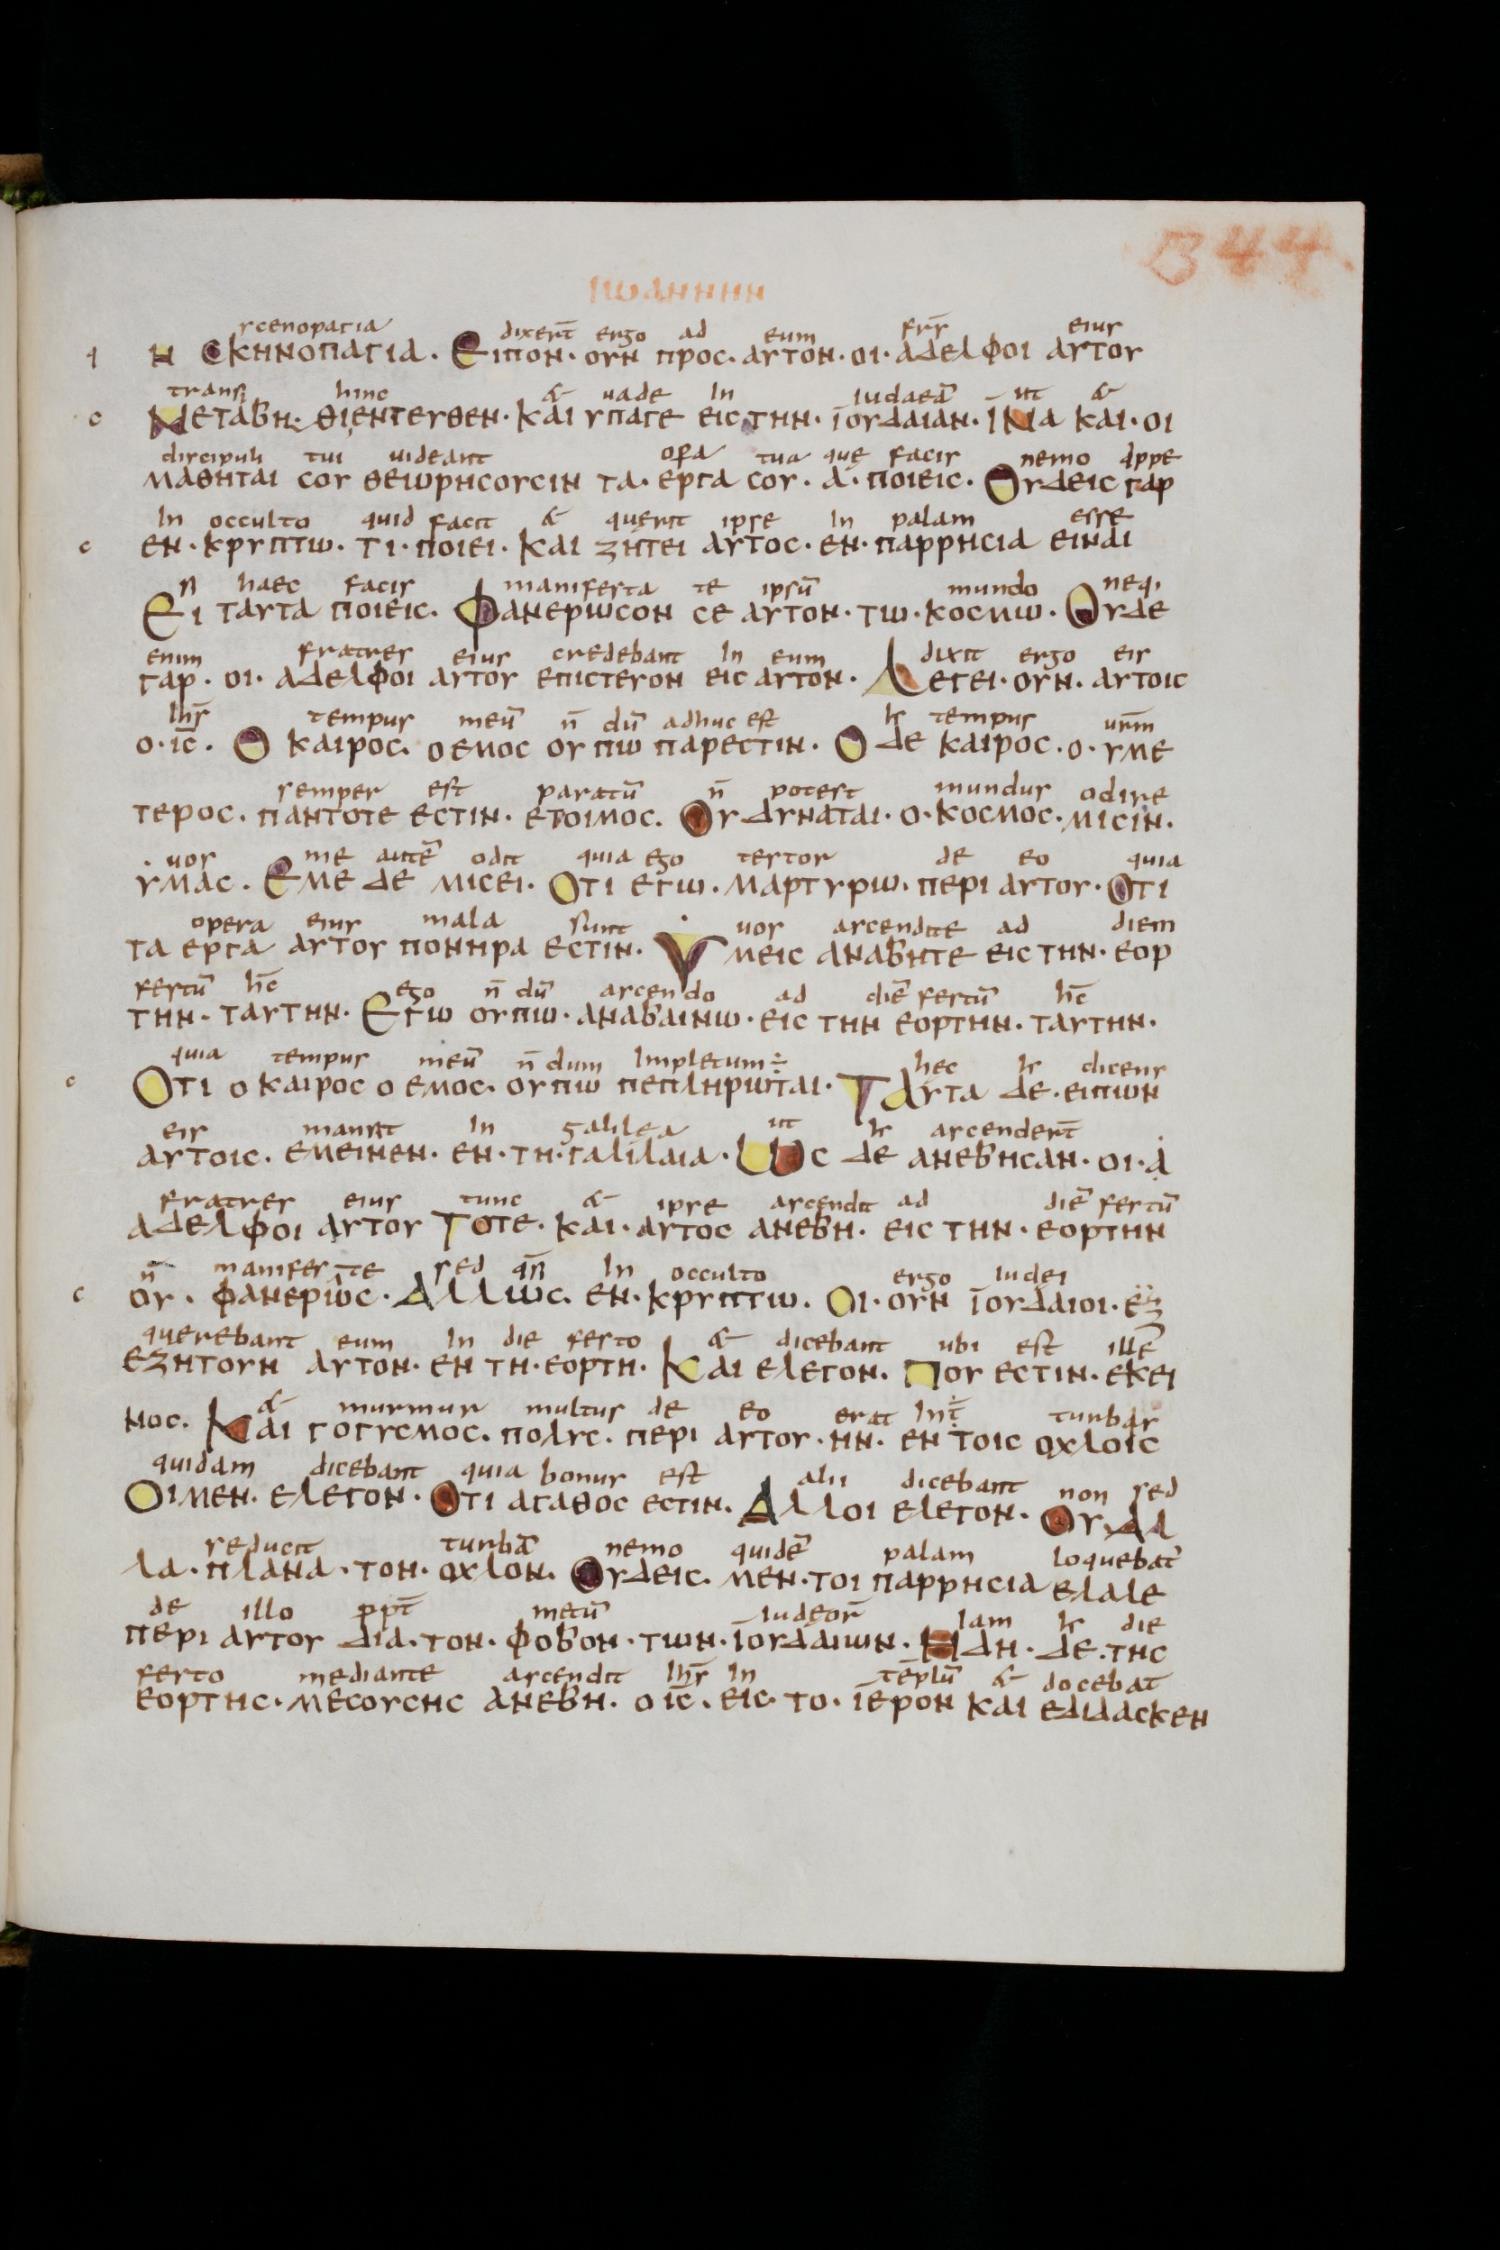 344.
ΙΩΑΝΝΗΝ
scenopagia dixer̄t ergo ad eum fr̄r eius
Η CΚΗΝΟΠΑΓΙΑ · ΕΙΠΟΝ · ΟΥΝ ΠΡΟC · ΑΥΤΟΝ · ΟΙ · ΑΔΕΛΦΟΙ ΑΥΤΟΥ
transi hinc & uade In iudaeā ut &
ΜΕΤΑΒΗ · ΘΙΕΝΤΕΥΘΕΝ · ΚΑΙ ΥΠΑΓΕ ΕΙC ΤΗΝ · ΙΟΥΔΑΙΑΝ · ΙΝΑ ΚΑΙ · ΟΙ
discipuli tui uideant opa tua quę facis nemo qppe
ΜΑΘΗΤΑΙ CΟΥ ΘΕΙΩΡΗCΟΥCΙΝ ΤΑ · ΕΡΓΑ CΟΥ · Α · ΠΟΙΕΙC · ΟΥΔΕΙC ΓΑΡ
In occulto quid facit & querit ipse In palam esse
ΕΝ · ΚΡΥΠΤΩ · ΤΙ · ΠΟΙΕΙ · ΚΑΙ ΖΗΤΕΙ ΑΥΤΟC · ΕΝ · ΠΑΡΡΗCΙΑ ΕΙΝΑΙ
si haec facis manifesta te ipsū mundo neq;
ΕΙ ΤΑΥΤΑ ΠΟΙΕΙC · ΦΑΝΕΡΩCΟΝ CΕ ΑΥΤΟΝ · ΤΩ · ΚΟCΜΩ · ΟΥΔΕ
enim fratres eius credebant In eum dixit ergo eis
ΓΑΡ · ΟΙ · ΑΔΕΛΦΟΙ ΑΥΤΟΥ ΕΠΙCΤΕΥΟΝ ΕΙC ΑΥΤΟΝ · ΛΕΓΕΙ · ΟΥΝ · ΑΥΤΟΙC
Ihs̄ tempus meū n̄ dū adhuc est h tempus ur̄m
Ο · ΙC̄ · Ο ΚΑΙΡΟC · Ο ΕΜΟC ΟΥΠΩ ΠΑΡΕCΤΙΝ · Ο ΔΕ ΚΑΙΡΟC · Ο · ΥΜΕ
semper est paratū n̄ potest mundus odire
ΤΕΡΟC · ΠΑΝΤΟΤΕ ΕCΤΙΝ · ΕΤΟΙΜΟC · ΟΥ ΔΥΝΑΤΑΙ · Ο · ΚΟCΜΟC · ΜΙCΙΝ ·
uos me autē odit quia ego testor de eo quia
ΥΜΑC · ΕΜΕ ΔΕ ΜΙCΕΙ · ΟΤΙ ΕΓΩ · ΜΑΡΤΥΡΩ · ΠΕΡΙ ΑΥΤΟΥ · ΟΤΙ
opera eius mala sunt uos ascendite ad diem
ΤΑ ΕΡΓΑ ΑΥΤΟΥ ΠΟΝΗΡΑ ΕCΤΙΝ · ΥΜΕΙC ΑΝΑΒΗΤΕ ΕΙC ΤΗΝ · ΕΟΡ
festū hc̄ ego n̄ dū ascendo ad diē festū hc̄
ΤΗΝ · ΤΑΥΤΗΝ · ΕΓΩ ΟΥΠΩ · ΑΝΑΒΑΙΝΩ · ΕΙC ΤΗΝ ΕΟΡΤΗΝ · ΤΑΥΤΗΝ ·
quia tempus meū n̄ dum Impletum ÷ hec h dicens
ΟΤΙ Ο ΚΑΙΡΟC Ο ΕΜΟC · ΟΥΠΩ ΠΕΠΛΗΡΩΤΑΙ · ΤΑΥΤΑ ΔΕ · ΕΙΠΩΝ
eis mansit In galilea ut h ascender̄t
ΑΥΤΟΙC · ΕΜΕΙΝΕΝ · ΕΝ · ΤΗ · ΓΑΛΙΛΑΙΑ · ΩC ΔΕ ΑΝΕΒΗCΑΝ · ΟΙ · Α
fratres eius tunc & ipse ascendit ad diē festū
ΑΔΕΛΦΟΙ ΑΥΤΟΥ ΤΟΤΕ · ΚΑΙ · ΑΥΤΟC ΑΝΕΒΗ · ΕΙC ΤΗΝ · ΕΟΡΤΗΝ
n̄ manifeste sed qs̄i In occulto ergo iudei
ΟΥ · ΦΑΝΕΡΙΩC · ΑΛΛΙΩC · ΕΝ · ΚΡΥΠΤΩ · ΟΙ · ΟΥΝ ΙΟΥΔΑΙΟΙ · ΕΖ
querebant eum In die festo & dicebant ubi est illē
ΕΖΗΤΟΥΝ ΑΥΤΟΝ · ΕΝ ΤΗ · ΕΟΡΤΗ · ΚΑΙ ΕΛΕΓΟΝ · ΠΟΥ ΕCΤΙΝ · ΕΚΕΙ
& murmur multus de eo erat In t turbas
ΝΟC · ΚΑΙ ΓΟΓΥCΜΟC · ΠΟΛΥC · ΠΕΡΙ ΑΥΤΟΥ · ΗΝ · ΕΝ ΤΟΙC ΟΧΛΟΙC
quidam dicebant quia bonus est alii dicebant non sed
ΟΙ ΜΕΝ · ΕΛΕΓΟΝ · ΟΤΙ ΑΓΑΘΟC ΕCΤΙΝ · ΑΛΛΟΙ ΕΛΕΓΟΝ · ΟΥ · ΑΛ
seducit turbā nemo quidē palam loquebat
ΛΑ · ΠΛΑΝΑ · ΤΟΝ · ΟΧΛΟΝ · ΟΥΔΕΙC · ΜΕΝ · ΤΟΙ ΠΑΡΡΗCΙΑ ΕΛΑΛΕ
de illo ppt̄ metū iudeor̄ Iam h die
ΠΕΡΙ ΑΥΤΟΥ ΔΙΑ · ΤΟΝ · ΦΟΒΟΝ · ΤΩΝ · ΙΟΥΔΑΙΩΝ · ΗΔΗ · ΔΕ · ΤΗC
festo mediante ascendit Ihs̄ In tēplū & docebat
ΕΟΡΤΗC · ΜΕCΟΥCΗC ΑΝΕΒΗ · Ο ΙC̄ · ΕΙC · ΤΟ · ΙΕΡΟΝ ΚΑΙ ΕΔΙΔΑCΚΕΝ